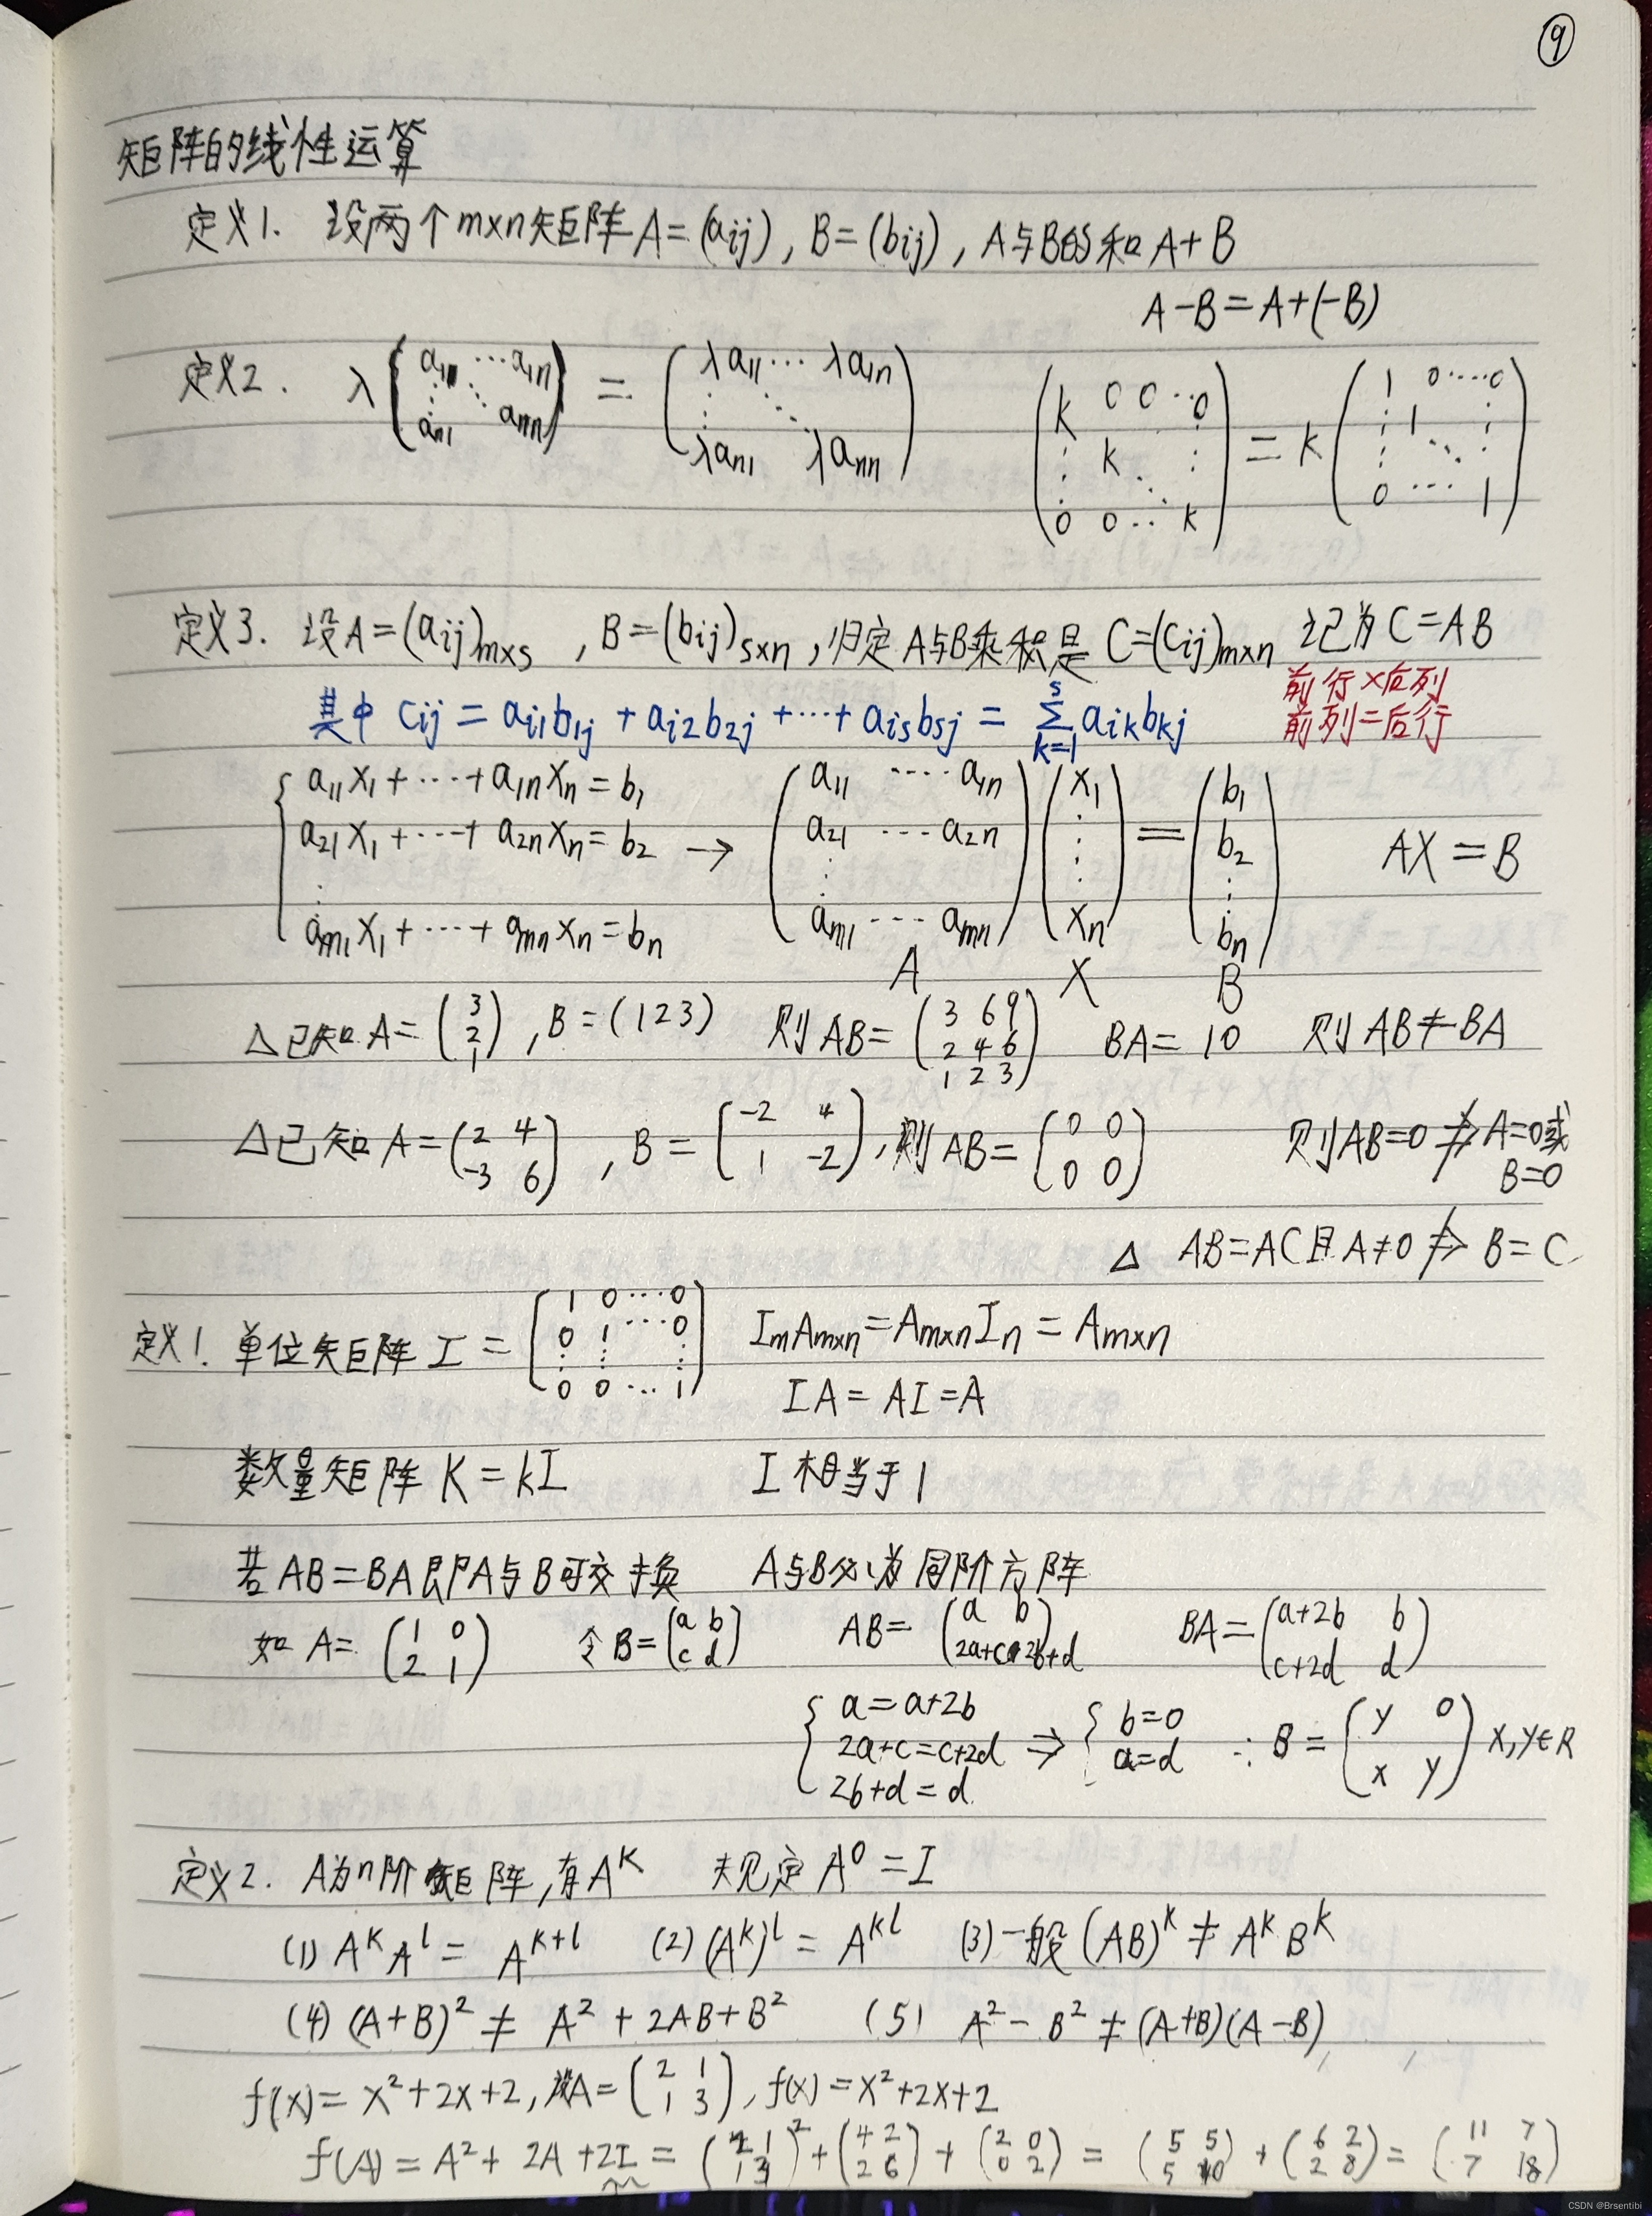 ⑨
矩阵的线性运算
定义1. 设两个m×n矩阵A=(aij), B=(bij), A与B的和A+B
A-B=A+(-B)
定义2. λ(a11 ⋯ a1n ⋮ ⋱ an1 ann) = (λa11 ⋯ λa1n ⋮ ⋱ λan1 λann) (k 0 0 ⋯ 0 ⋮ k ⋱ ⋮ 0 0 ⋯ k) = k(1 0 ⋯ 0 ⋮ 1 ⋱ ⋮ 0 ⋯ 1)
定义3. 设A=(aij)m×s, B=(bij)s×n, 归定A与B乘积是C=(cij)m×n 记为C=AB
前行×后列
其中 cij = ai1b1j + ai2b2j + ⋯ + aisbsj = Σ(k=1→s) aikbkj 前列=后行
{ a11x1+⋯+a1nxn=b1
a21x1+⋯+a2nxn=b2 → (a11 ⋯ a1n a21 ⋯ a2n ⋮ am1 ⋯ amn)(x1 ⋮ xn)=(b1 b2 ⋮ bn) AX=B
⋮
am1x1+⋯+amnxn=bn
A X B
△已知A=(3 2 1), B=(1 2 3) 则AB=(3 6 9 2 4 6 1 2 3) BA=10 则AB≠BA
△已知A=(2 4 -3 6), B=(-2 4 1 -2), 则AB=(0 0 0 0) 则AB=0⇏A=0或
B=0
△ AB=AC且A≠0⇏B=C
定义1. 单位矩阵 I = (1 0 ⋯ 0 0 1 ⋯ 0 ⋮ ⋮ ⋮ 0 0 ⋯ 1) ImAm×n=Am×nIn=Am×n
IA=AI=A
数量矩阵K=kI I相当于1
若AB=BA即A与B可交换 A与B必为同阶方阵
如A=(1 0 2 1) 令B=(a b c d) AB=(a b 2a+c 2b+d) BA=(a+2b b c+2d d)
{ a=a+2b 2a+c=c+2d 2b+d=d ⇒ { b=0 a=d ∴B=(y 0 x y) x,y∈R
定义2. A为n阶矩阵,有A^k 规定A^0=I
(1) A^k A^l = A^(k+l) (2) (A^k)^l = A^(kl) (3)一般(AB)^k≠A^k B^k
(4) (A+B)²≠A²+2AB+B² (5) A²-B²≠(A+B)(A-B)
f(x)=x²+2x+2, 设A=(2 1 1 3), f(x)=x²+2x+2
f(A)=A²+2A+2I=(2 1 1 3)²+(4 2 2 6)+(2 0 0 2)=(5 5 5 10)+(6 2 2 8)=(11 7 7 18)
CSDN @Brsentibi